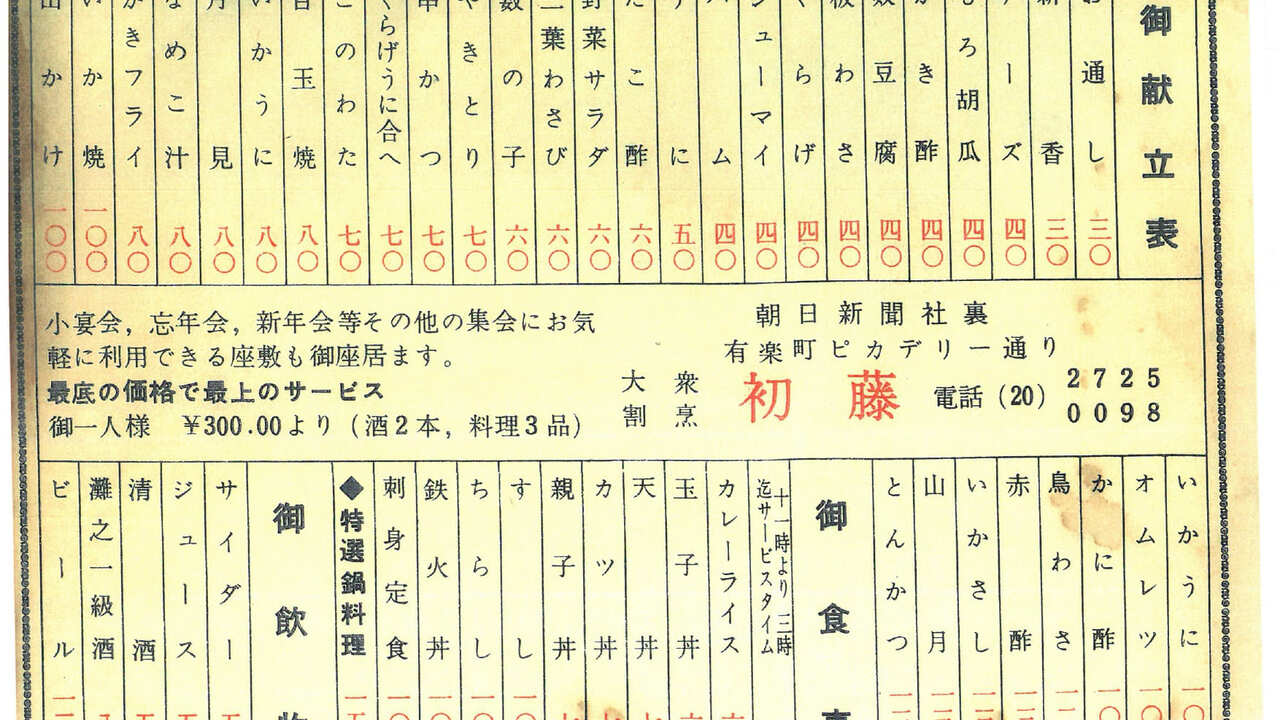 御献立表
お通し 三〇
新香 三〇
チーズ 四〇
もろ胡瓜 四〇
かき酢 四〇
奴豆腐 四〇
板わさ 四〇
くらげ 四〇
シューマイ 四〇
ハム 四〇
うに 五〇
たこ酢 六〇
野菜サラダ 六〇
三葉わさび 六〇
数の子 六〇
やきとり 七〇
串かつ 七〇
くらげうに合へ 七〇
このわた 七〇
目玉焼 八〇
いかうに 八〇
月見 八〇
なめこ汁 八〇
かきフライ 八〇
いか焼 一〇〇
山かけ 一〇〇
朝日新聞社裏
有楽町ピカデリー通り
大衆割烹 初藤 電話(20) 2725
0098
小宴会，忘年会，新年会等その他の集会にお気
軽に利用できる座敷も御座居ます。
最底の価格で最上のサービス
御一人様 ¥300.00より(酒2本，料理3品)
いかうに
オムレツ
かに酢
鳥わさ
赤酢
いかさし
山月
とんかつ
御食事
十一時より三時
迄サービスタイム
カレーライス
玉子丼
天丼
カツ丼
親子丼
すし
ちらし
鉄火丼
刺身定食
◆特選鍋料理
御飲物
サイダー
ジュース
清酒
灘之一級酒
ビール